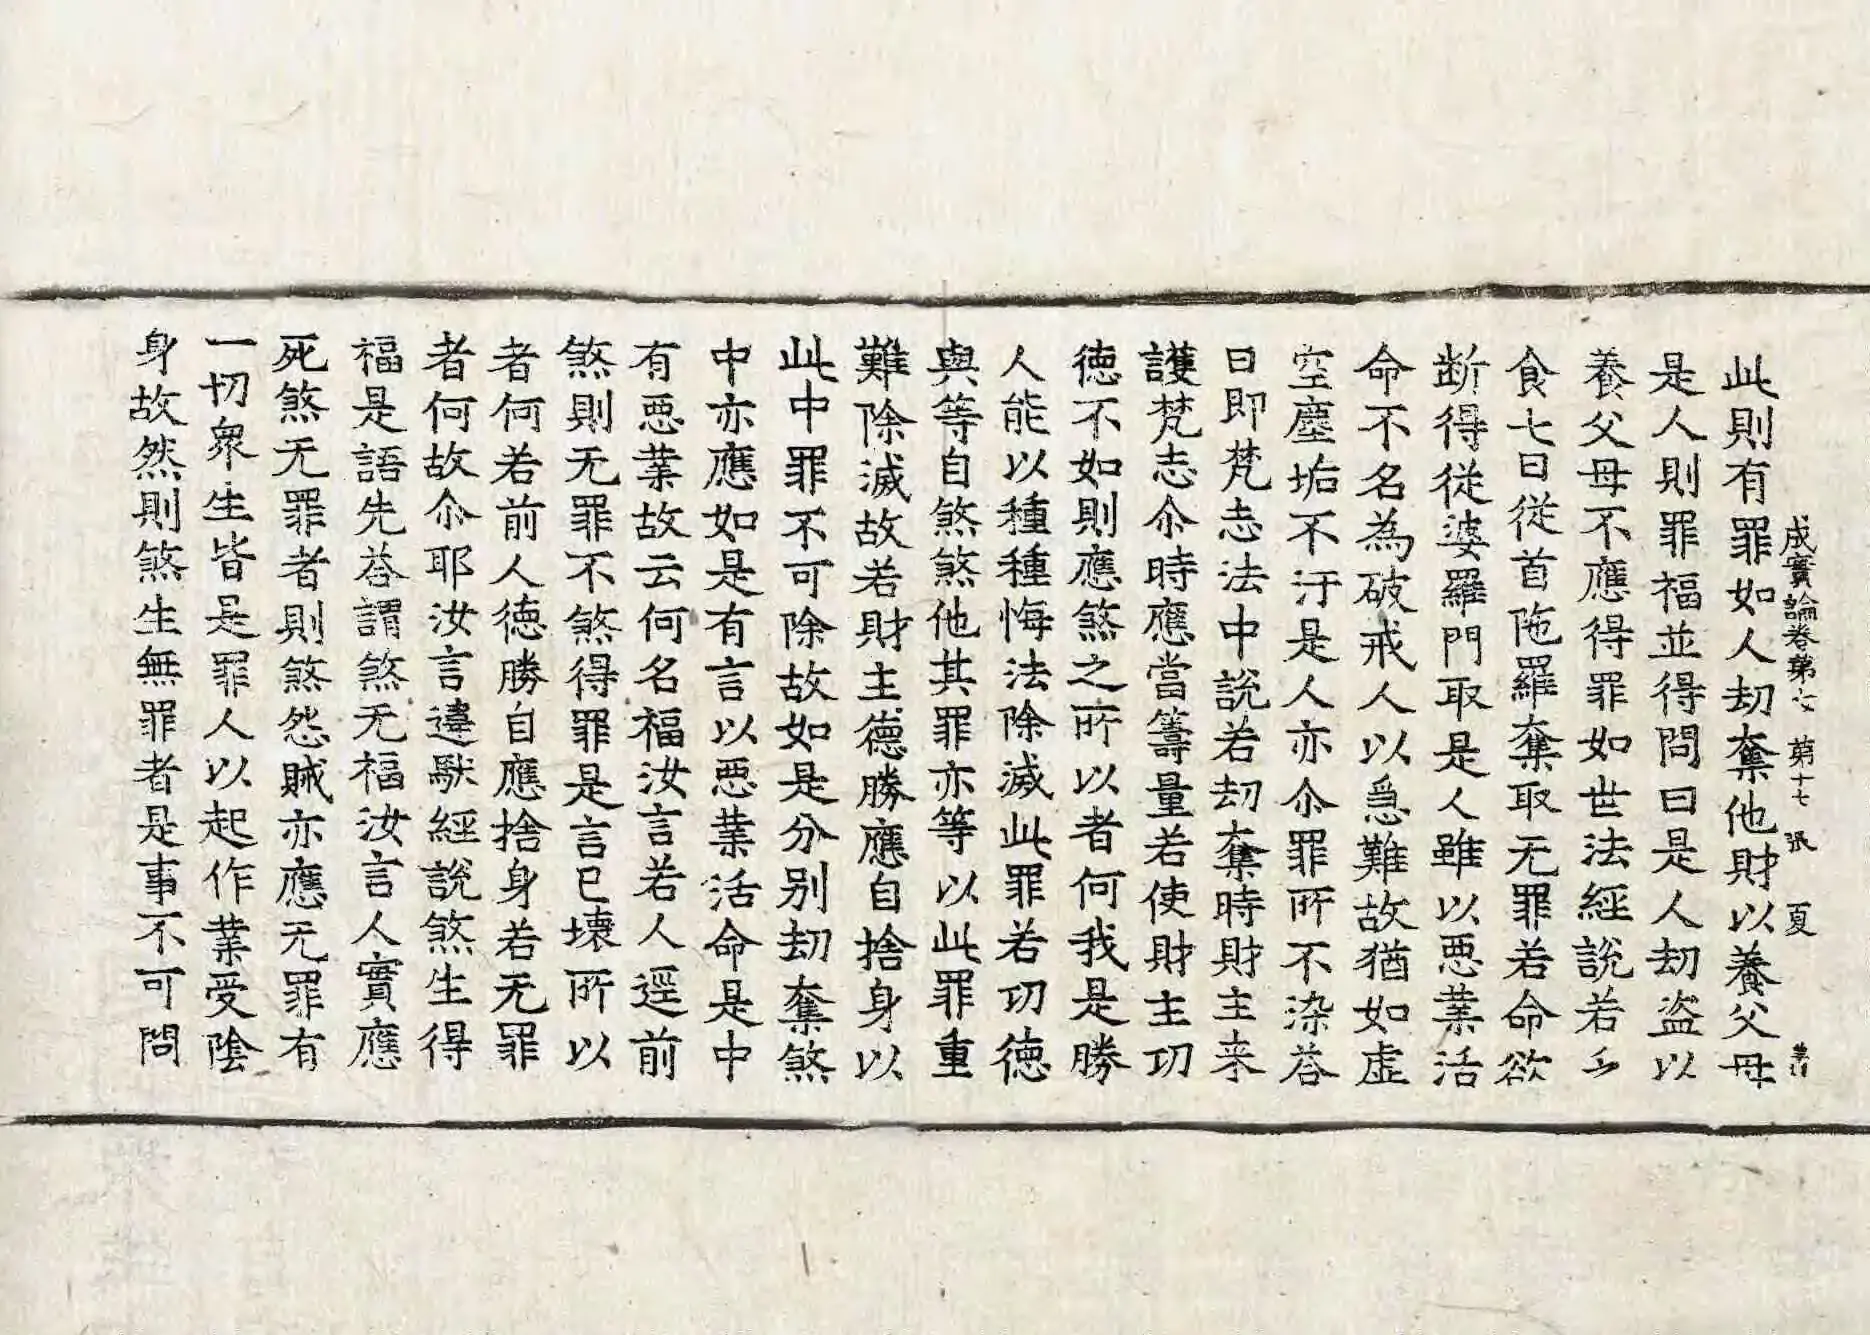 成實論卷第七　第十七張　夏
此則有罪如人劫奪他財以養父母
是人則罪福並得問曰是人劫盜以
養父母不應得罪如世法經說若乏
食七日從首陁羅奪取无罪若命欲
断得從婆羅門取是人雖以惡業活
命不名為破戒人以急難故猶如虛
空塵垢不汙是人亦尒罪所不染荅
曰即梵志法中說若劫奪時財主来
護梵志尒時應當籌量若使財主功
德不如則應煞之所以者何我是勝
人能以種種悔法除滅此罪若功德
與等自煞煞他其罪亦等以此罪重
難除滅故若財主德勝應自捨身以
此中罪不可除故如是分別劫奪煞
中亦應如是有言以惡業活命是中
有惡業故云何名福汝言若人逕前
煞則无罪不煞得罪是言已壞所以
者何若前人德勝自應捨身若无罪
者何故尒耶汝言違猒經說煞生得
福是語先荅謂煞无福汝言人實應
死煞无罪者則煞怨賊亦應无罪有
一切衆生皆是罪人以起作業受陰
身故然則煞生無罪者是事不可問